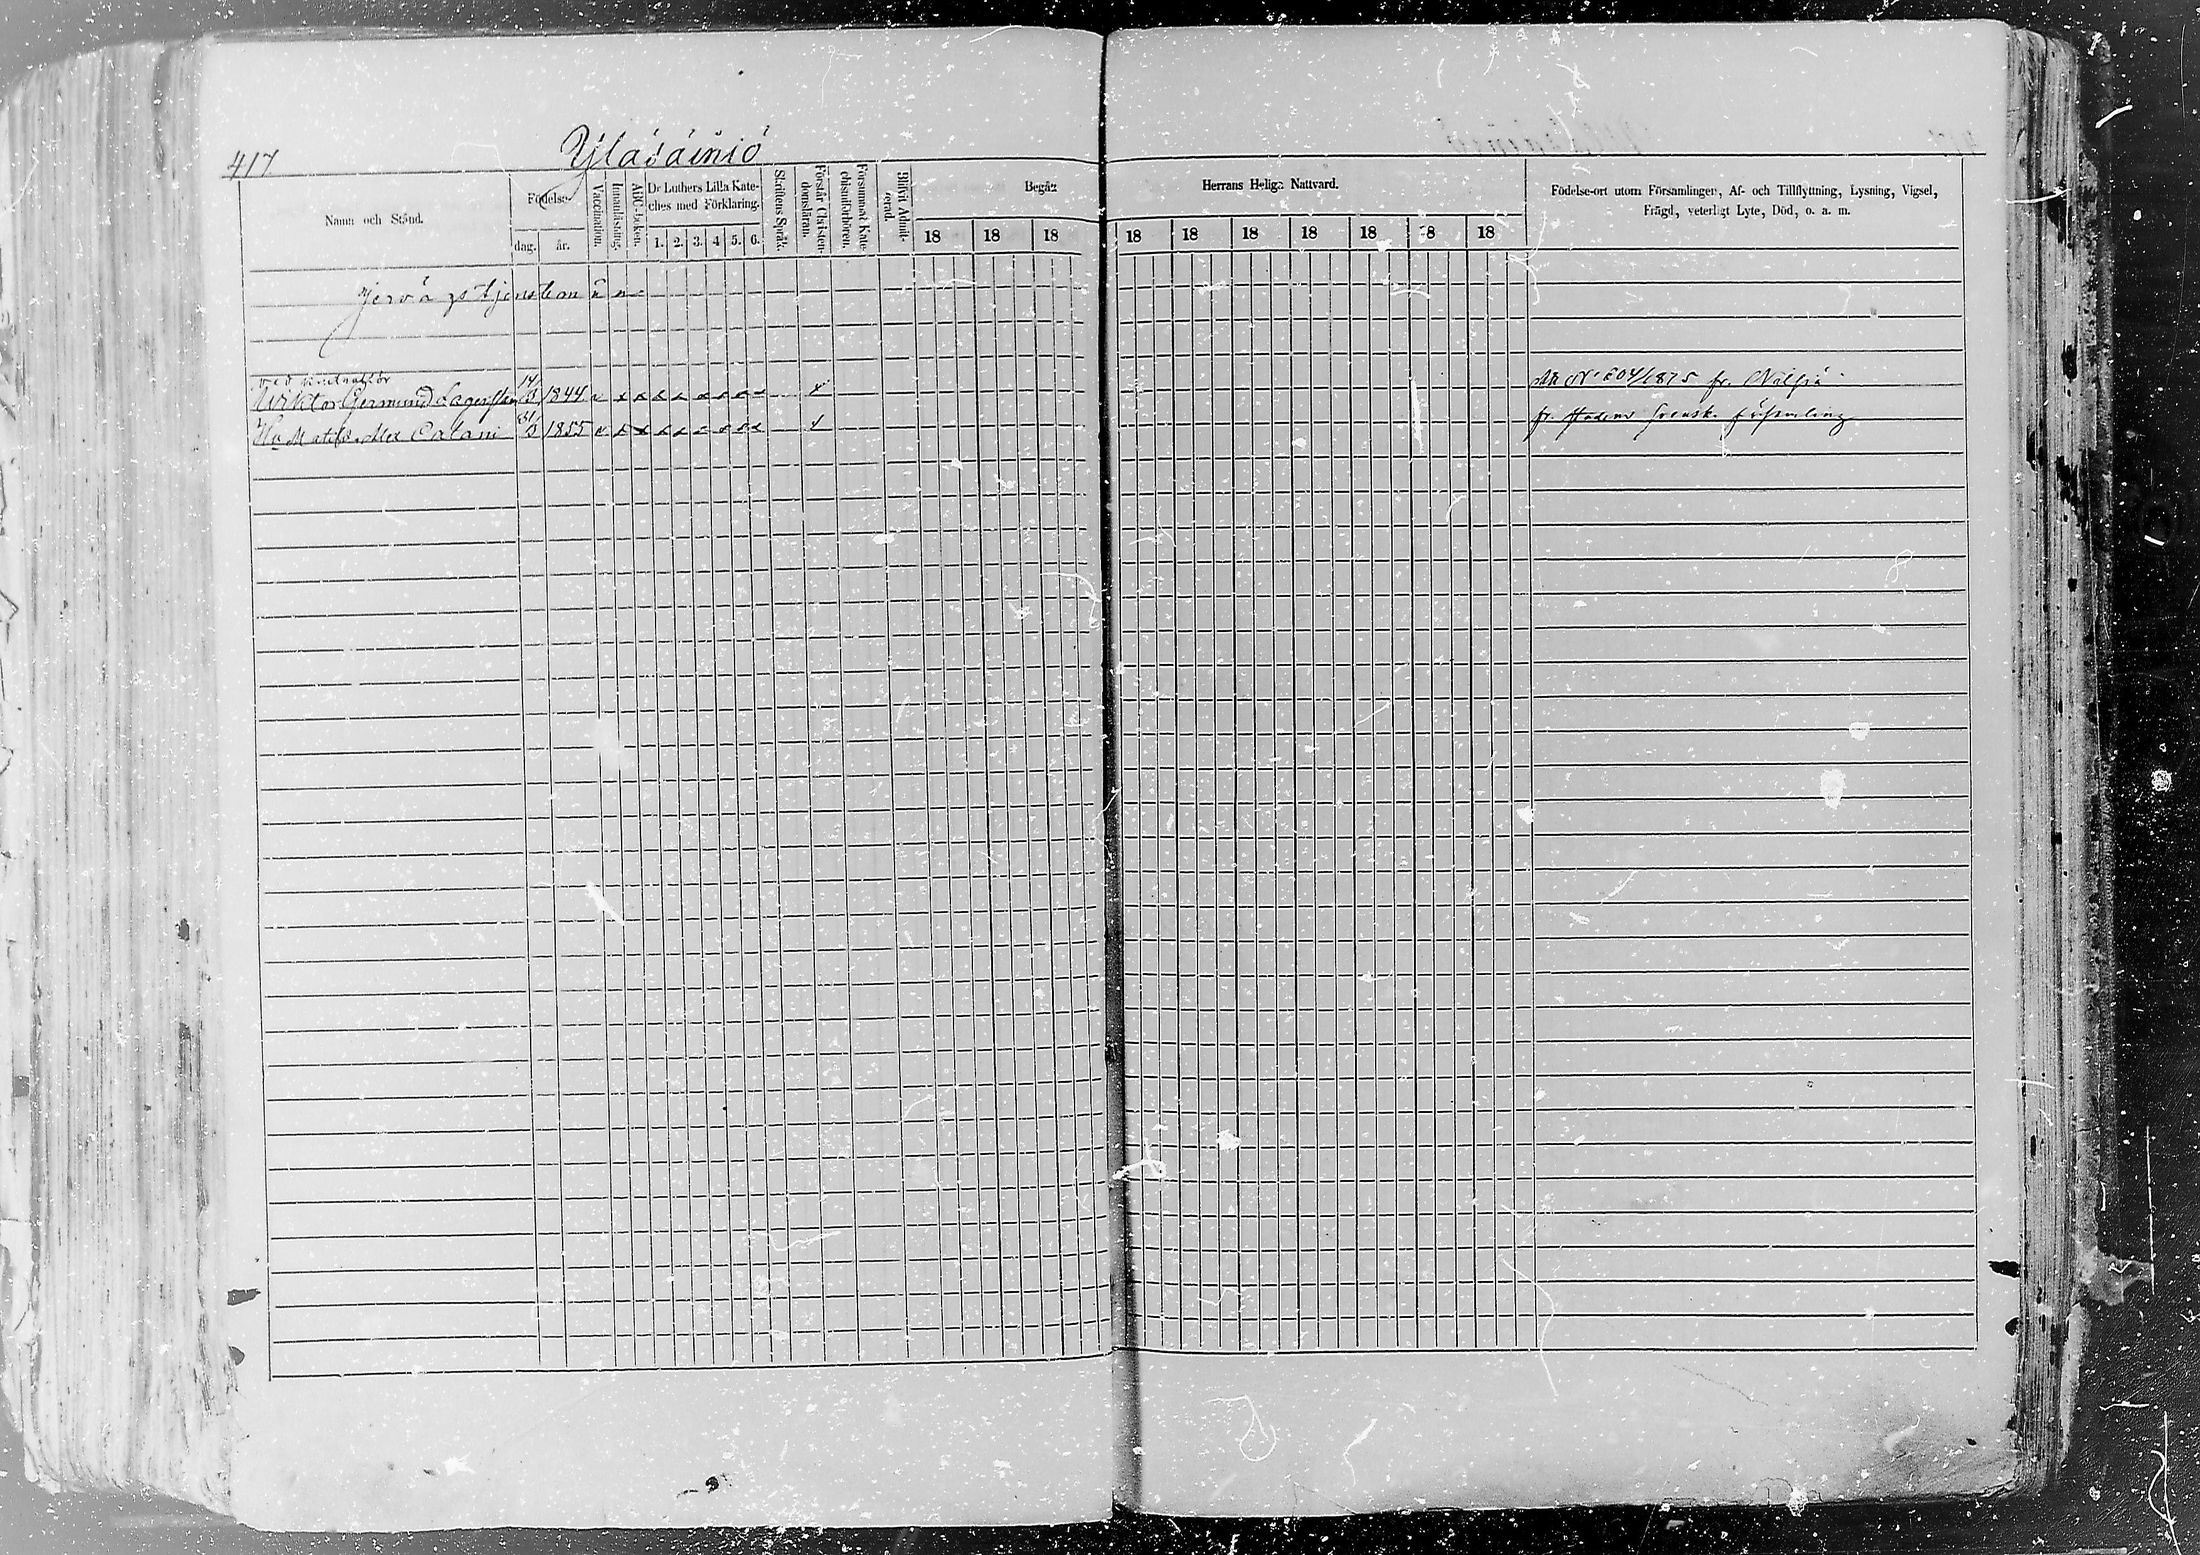 417 Yläsäiniö
Namn och Stånd.
Födelse-
dag. år.
Vaccination.
Innanläsning.
ABC-boken.
Dr Luthers Lilla Kate-
ches med Förklaring.
1. 2. 3. 4 5. 6.
Skriftens Språk.
Förstår Christen-
domsläran.
Försummat Kate-
chismiförhören.
Blifvit Admit-
terad.
Begått Herrans Heliga Nattvard.
18 18 18 18 18 18 18 18 18 18
Födelse-ort utom Församlingen, Af- och Tillflyttning, Lysning, Vigsel,
Frägd, veterligt Lyte, Död, o. a. m.
Jervägstjensteman
Viktor Germund 1844 N 604/1875 fr.
Hu 1855 fr. Svensk. Församling